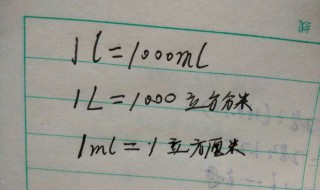 1L=1000mL
1L=1000立方分米
1mL=1立方厘米